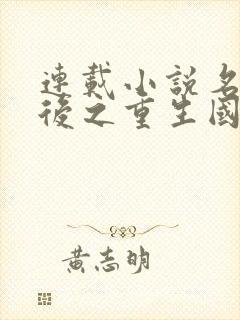 連載小說名
後之重生國
黃志明